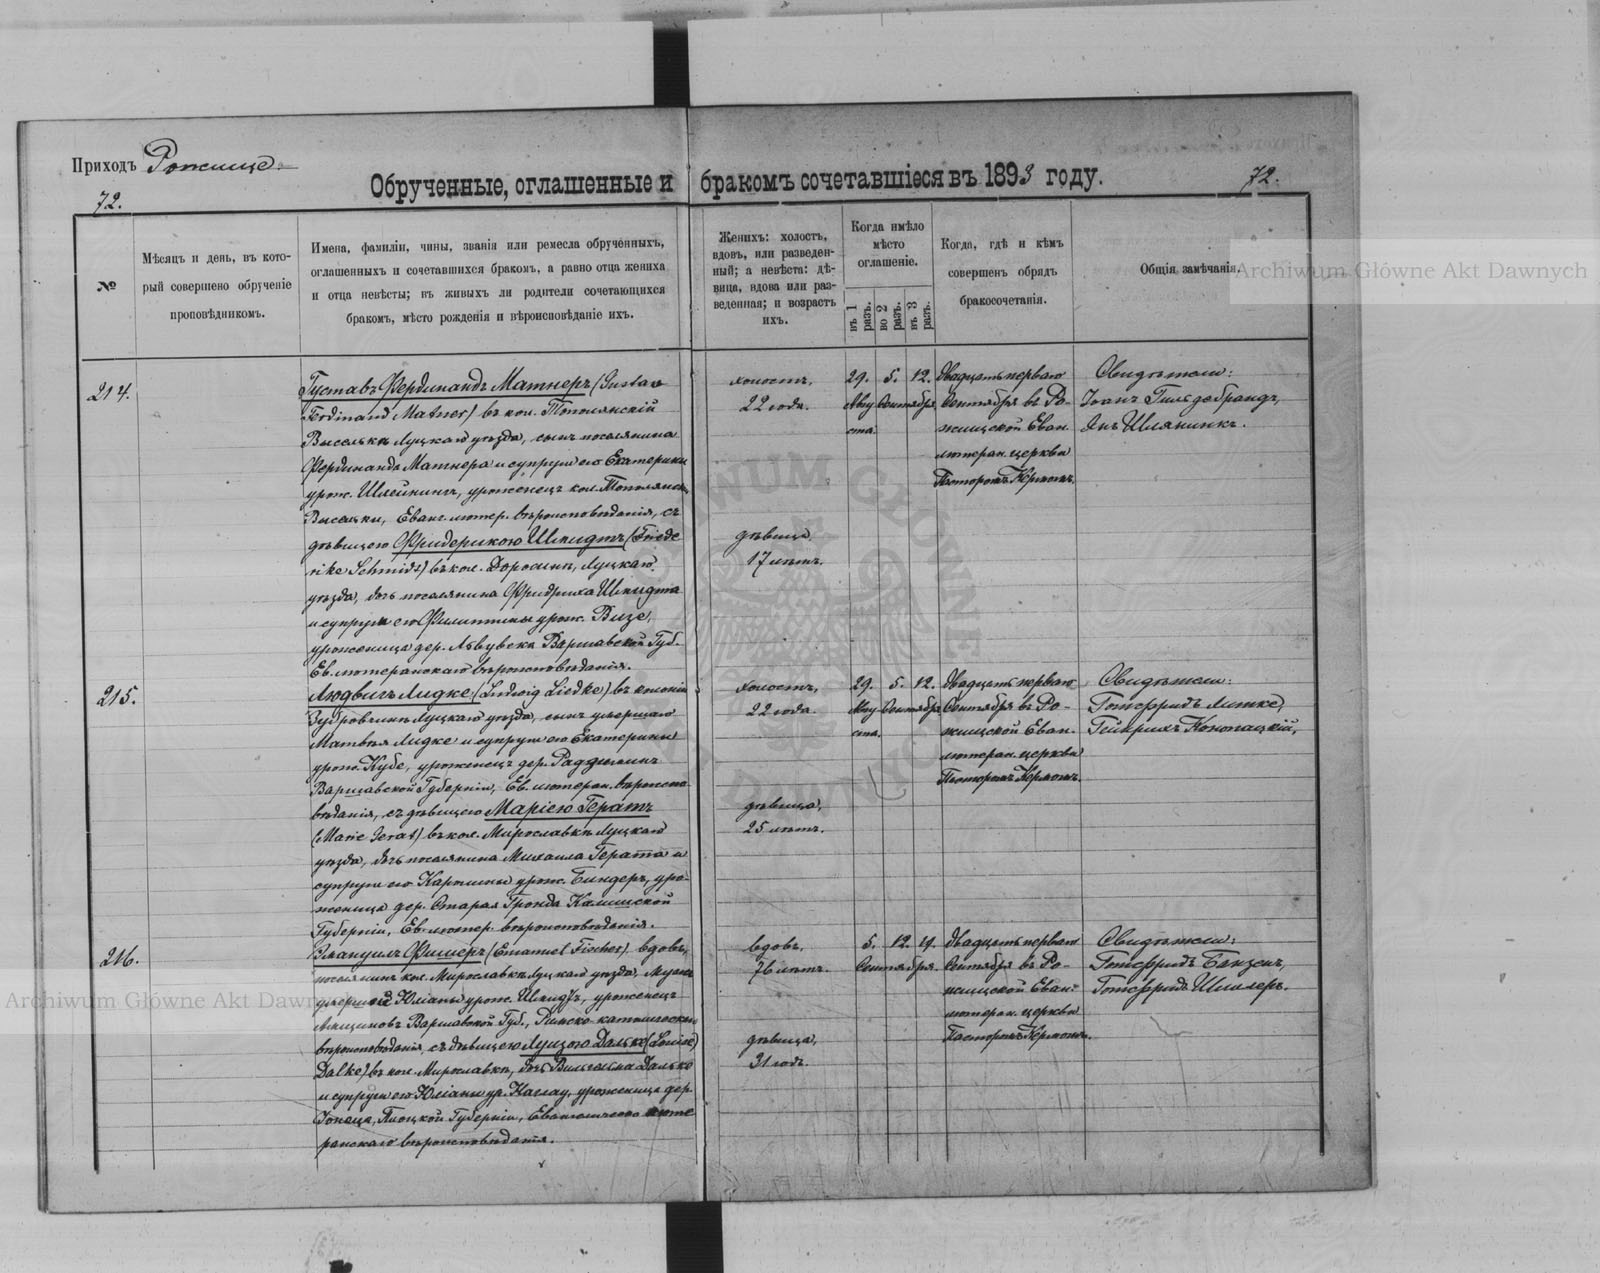 Приходъ Рожище
72.
Обрученные, оглашенные и бракомъ сочетавшіеся въ 1893 году.
72.
№
Мѣсяцъ и день, въ кото-
рый совершено обрученіе
проповѣдникомъ.
Имена, фамиліи, чины, званія или ремесла обрученныхъ,
оглашенныхъ и сочетавшихся бракомъ, а равно отца жениха
и отца невѣсты; въ живыхъ ли родители сочетающихся
бракомъ, мѣсто рожденія и вѣроисповѣданіе ихъ.
Женихъ: холостъ,
вдовъ, или разведен-
ный; а невѣста: дѣ-
вица, вдова или раз-
веденная; и возрастъ
ихъ.
Когда имѣло
мѣсто
оглашеніе.
въ 1 разъ.
во 2 разъ.
въ 3 разъ.
Когда, гдѣ и кѣмъ
совершенъ обрядъ
бракосочетанія.
Общія замѣчанія.
Archiwum Główne Akt Dawnych
214.
Густавъ Фердинандъ Матнеръ (Gustav
Ferdinand Matner) въ кол. Тополянскій
Выселькъ Луцкаго уѣзда, сынъ поселянина
Фердинанда Матнера и супруги его Екатерины
урож. Шлейнингъ, уроженецъ кол. Тополянск.
Выселки, Еванг. лютер. вѣроисповѣданія, съ
дѣвицею Фридерикою Шмидтъ (Friede
rike Schmidt) въ кол. Доросинъ, Луцкаго
уѣзда, дочь поселянина Фридриха Шмидта
и супруги его Филиппины урож. Визе,
уроженица дер. Варшавской Губ.
Ев. лютеранскаго вѣроисповѣданія.
холостъ,
22 года.
дѣвица,
17 лѣтъ.
29. 5. 12.
Авгу Сентября
ста.
Двадцать перваго
Сентября въ Ро-
жищской Еван.
лютеран. церкви
Пасторомъ Кёрмомъ.
Свидѣтели:
Іоганъ Гильдебрандъ,
Янъ
215.
Людвигъ Лидке (Ludwig Liedke) въ колоніи
Луцкаго уѣзда, сынъ умершаго
Матвѣя Лидке и супруги его Екатерины
урож. Кубе, уроженецъ дер. Раддиминъ
Варшавской Губерніи, Ев. лютеран. вѣроиспо-
вѣданія, съ дѣвицею Маріею Гератъ
(Marie Gerat) въ кол. Мирославкѣ Луцкаго
уѣзда, дочь поселянина Михаила Герата и
супруги его Каролины урож. Биндеръ, уро-
женица дер. Старая Гронда Калишской
Губерніи, Ев. лютер. вѣроисповѣданія.
холостъ,
22 года.
дѣвица,
25 лѣтъ.
29. 5. 12.
Авгу Сентября
ста.
Двадцать перваго
Сентября въ Ро-
жищской Еван.
лютеран. церкви
Пасторомъ Кёрмомъ.
Свидѣтели:
Готфридъ Литке,
Гейнрихъ Конопацкій,
216.
Эмануилъ Фишеръ (Emanuel Fischer) вдовъ,
поселянинъ кол. Мирославкѣ Луцкаго уѣзда, Мужъ
умершой Юліаны урож. Шмидтъ, уроженецъ
Варшавской Губ., Римско-католическаго
вѣроисповѣданія, съ дѣвицею Луизою Дальке (Louise
Dalke) въ кол. Мирославкѣ, дочь Вильгельма Дальке
и супруги его Юліаны ур. уроженица дер.
Плоцкой Губерніи, Евангелическо люте
ранскаго вѣроисповѣданія.
вдовъ,
76 лѣтъ.
дѣвица,
31 годъ.
5. 12. 19.
Сентября.
Двадцать перваго
Сентября въ Ро-
жищской Еван-
лютеран. церкви
Пасторомъ Кёрмомъ.
Свидѣтели:
Готфридъ Бензенъ,
Готфридъ Шиллеръ.
Archiwum Główne Akt Dawnych